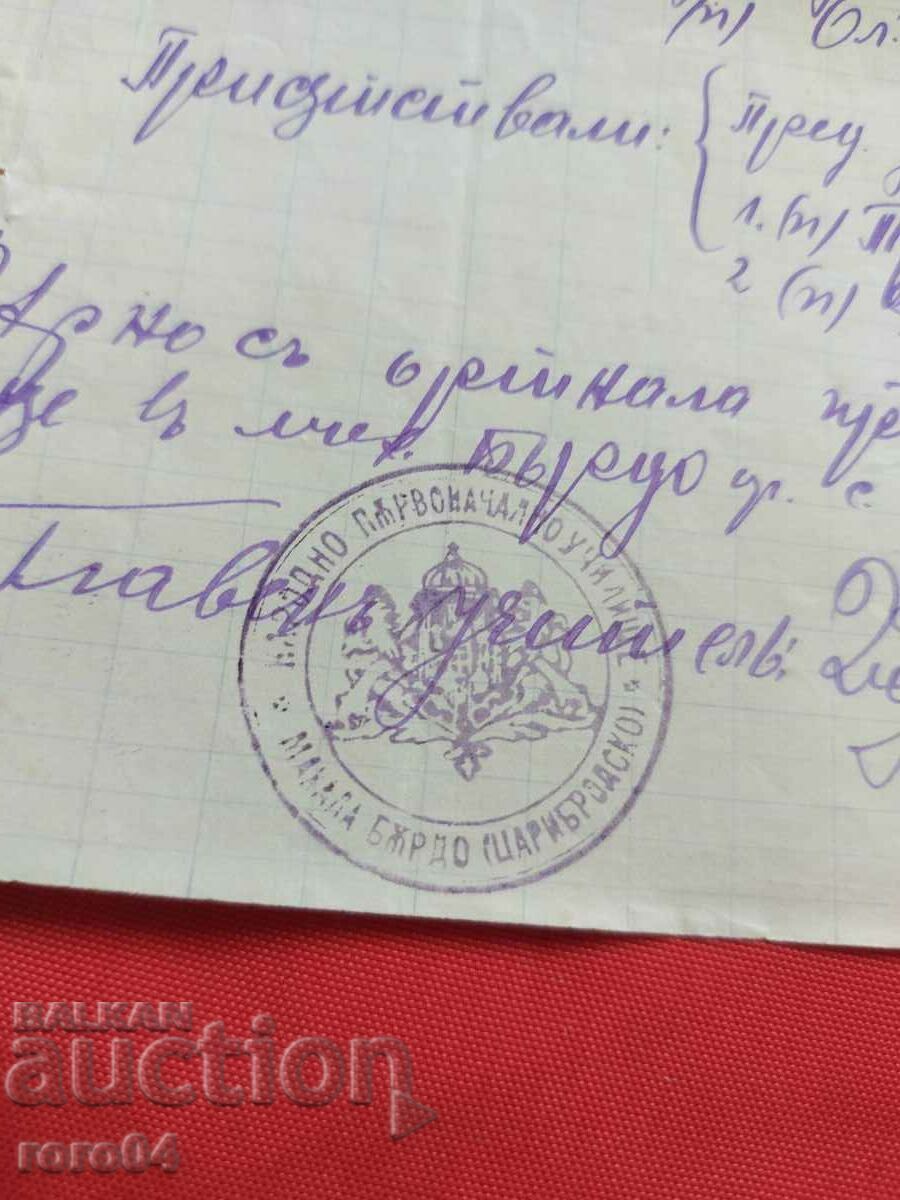 (п) Ол.
Присѫтствали: { Пред.
1. (п) П
2 (п) В
Вярно съ оригинала
въ мах. Бърдо
Главенъ учитель:
НАРОДНО ПѪРВОНАЧАЛНО УЧИЛИЩЕ
МАХАЛА БѪРДО (ЦАРИБРОДСКО)
BALKAN
auction
roro04